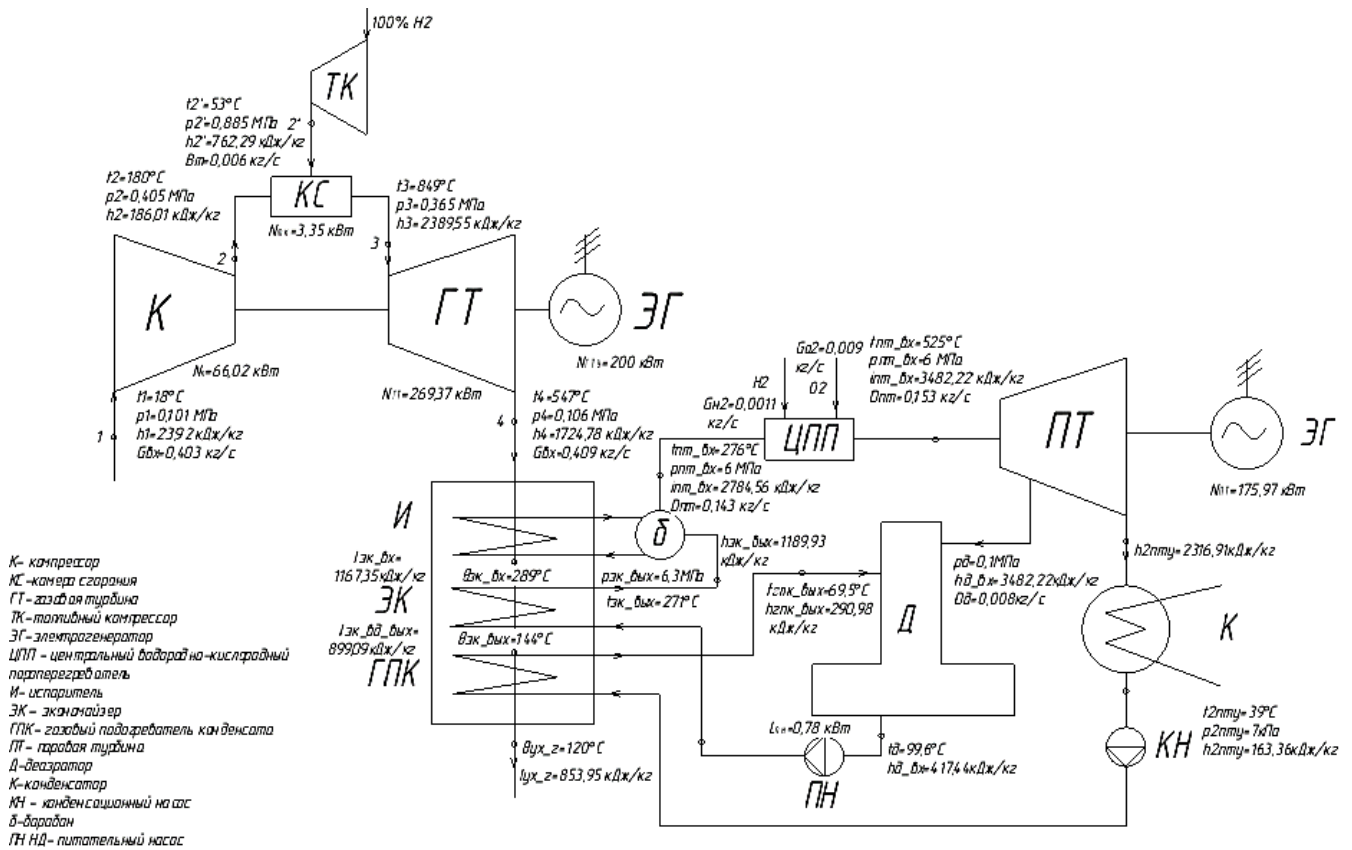 100% H2
ТК
t2'=53°C
p2'=0,885 МПа
2'
h2'=762,29 кДж/кг
Вт=0,006 кг/с
t2=180°C
p2=0,405 МПа
h2=186,01 кДж/кг
КС
t3=849°C
p3=0,365 МПа
h3=2389,55 кДж/кг
=3,35 кВт
2
3
К
ГТ
ЭГ
=200 кВт
Nк=66,02 кВт
Nгт=269,37 кВт
t1=18°C
p1=0,101 МПа
h1=239,2 кДж/кг
Gвх=0,403 кг/с
1
4
t4=547°C
p4=0,106 МПа
h4=1724,78 кДж/кг
Gвх=0,409 кг/с
H2
Gн2=0,0011
кг/с
Go2=0,009
кг/с
O2
ЦПП
tпт_вх=525°C
pпт_вх=6 МПа
iпт_вх=3482,22 кДж/кг
Dпт=0,153 кг/с
ПТ
ЭГ
Nпт=175,97 кВт
tпт_вх=276°C
pпт_вх=6 МПа
iпт_вх=2784,56 кДж/кг
Dпт=0,143 кг/с
И
б
hэк_вых=1189,93
кДж/кг
Iэк_вх=
1167,35кДж/кг
θэк_вх=289°C
pэк_вых=6,3МПа
tэк_вых=271°C
ЭК
Iэк_вд_вых=
899,09кДж/кг
θэк_вых=144°C
ГПК
tгпк_вых=69,5°C
hгпк_вых=290,98
кДж/кг
Д
pд=0,1МПа
hд_вх=3482,22кДж/кг
Dд=0,008кг/с
h2пту=2316,91кДж/кг
К
t2пту=39°C
p2пту=7кПа
h2пту=163,36кДж/кг
КН
=0,78 кВт
tд=99,6°C
hд_вх=417,44кДж/кг
ПН
θух_г=120°C
Iух_г=853,95 кДж/кг
К- компрессор
КС-камера сгорания
ГТ-газовая турбина
ТК-топливный компрессор
ЭГ-электрогенератор
ЦПП - центральный водородно-кислородный
пароперегреватель
И- испаритель
ЭК - экономайзер
ГПК- газовый подогреватель конденсата
ПТ - паровая турбина
Д-деаэратор
К-конденсатор
КН - конденсационный насос
б-барабан
ПН НД- питательный насос